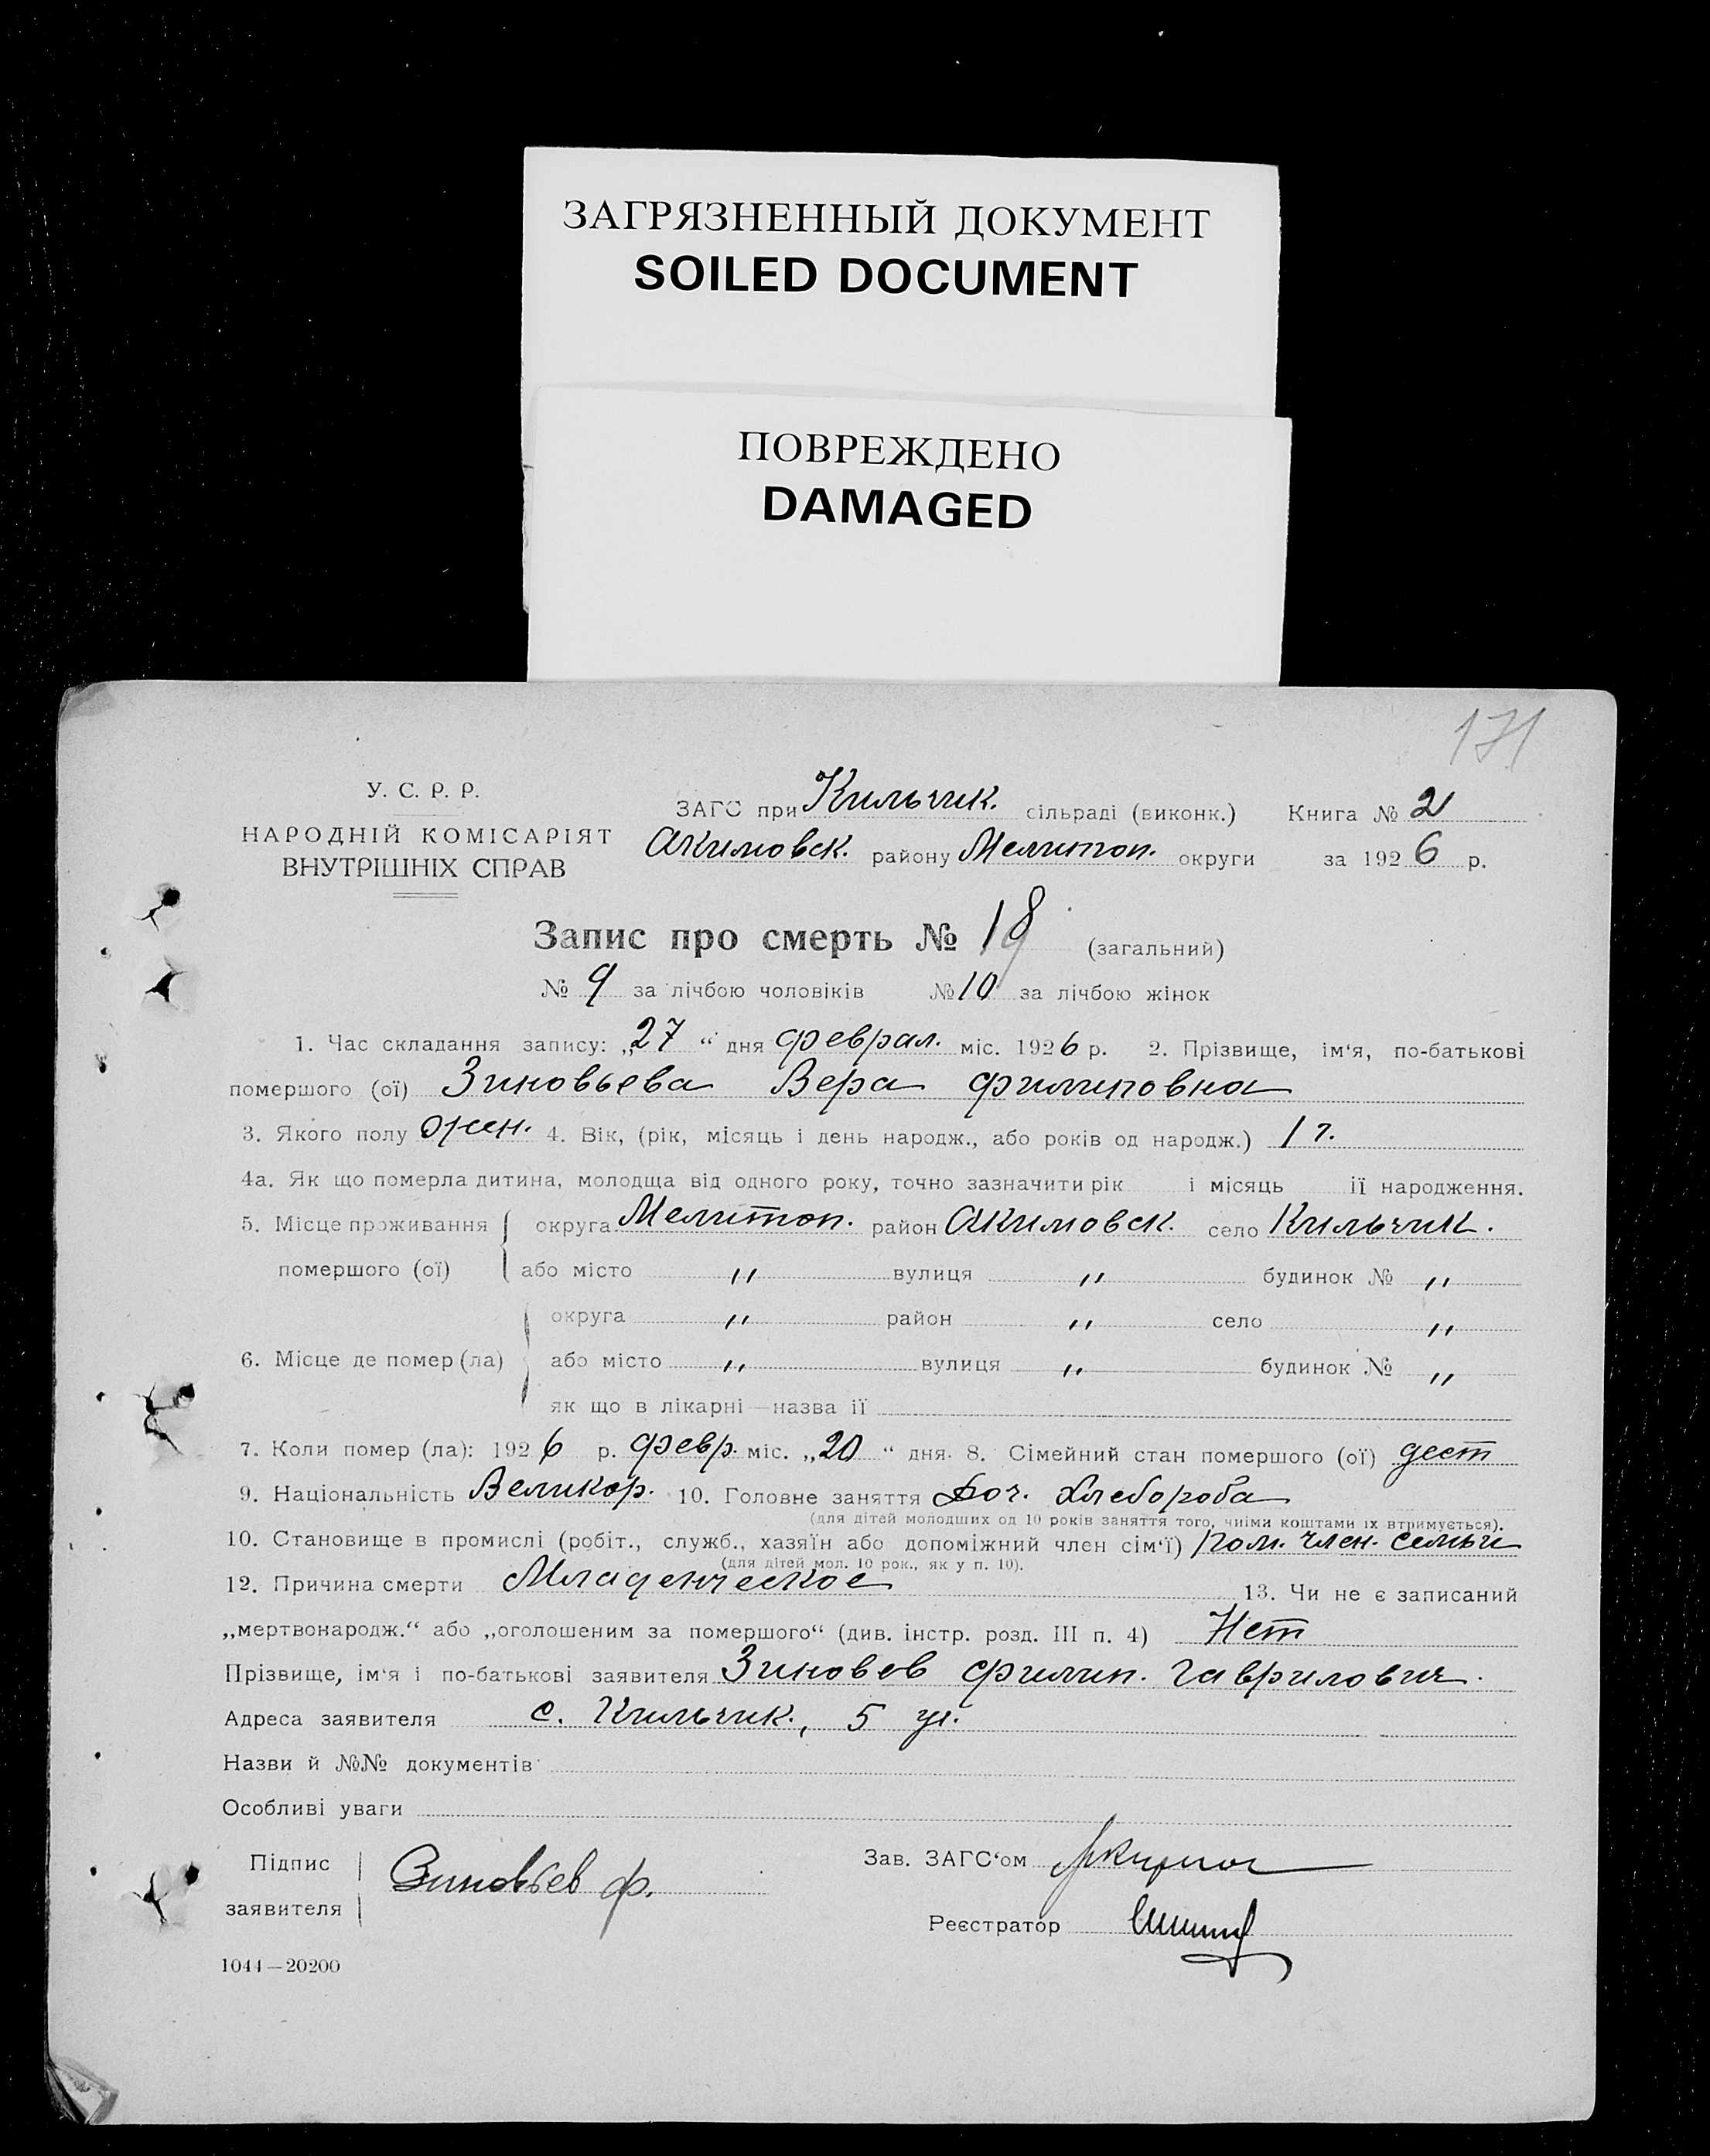 ЗАГРЯЗНЕННЫЙ ДОКУМЕНТ
SOILED DOCUMENT
ПОВРЕЖДЕНО
DAMAGED
171
У. С. Р. Р.
НАРОДНІЙ КОМІСАРІЯТ
ВНУТРІШНІХ СПРАВ
ЗАГС при Кильчик. сільраді (виконк.) Книга № 2
Акимовск. району Мелитоп. округи за 1926 р.
Запис про смерть № 18 (загальний)
№ 9 за лічбою чоловіків № 10 за лічбою жінок
1. Час складання запису: „27“ дня феврал. міс. 1926 р. 2. Прізвище, ім‘я, по-батькові
помершого (ої) Зиновьева Вера Филиповна
3. Якого полу жен. 4. Вік, (рік, місяць і день народж., або років од народж.) 1 г.
4а. Як що померла дитина, молодща від одного року, точно зазначити рік і місяць ії народження.
5. Місце проживання округа Мелитоп. район Акимовск. село Кильчик.
помершого (ої) або місто " вулиця " будинок № "
округа " район " село "
6. Місце де помер (ла) або місто " вулиця " будинок № "
як що в лікарні—назва ії
7. Коли помер (ла): 1926 р. февр. міс. „20“ дня. 8. Сімейний стан помершого (ої) дет
9. Національність Великор. 10. Головне заняття Доч. Хлебороба
(для дітей молодших од 10 років заняття того, чиїми коштами їх втримується).
10. Становище в промислі (робіт., служб., хазяїн або допоміжний член сім‘ї) пом. член. семьи
(для дітей мол. 10 рок., як у п. 10).
12. Причина смерти Младенческое 13. Чи не є записаний
„мертвонародж.“ або „оголошеним за помершого“ (див. інстр. розд. III п. 4) Нет
Прізвище, ім‘я і по-батькові заявителя Зиновев Филип. Гаврилович.
Адреса заявителя с. Кильчик., 5 уч.
Назви й №№ документів
Особливі уваги
Підпис
заявителя
Зиновьев Ф.
Зав. ЗАГС‘ом
Реєстратор
1044—20200